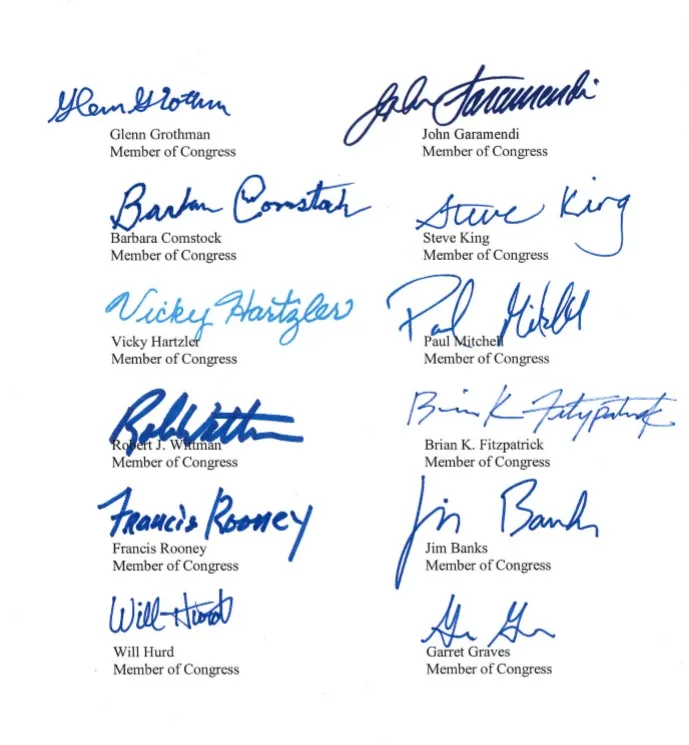 Glenn Grothman
John Garamendi
Glenn Grothman
John Garamendi
Member of Congress
Member of Congress
Barbara Comstock
Steve King
Barbara Comstock
Steve King
Member of Congress
Member of Congress
Vicky Hartzler
Paul Mitchell
Vicky Hartzler
Paul Mitchell
Member of Congress
Member of Congress
Rob Wittman
Brian K. Fitzpatrick
Robert J. Wittman
Brian K. Fitzpatrick
Member of Congress
Member of Congress
Francis Rooney
Jim Banks
Francis Rooney
Jim Banks
Member of Congress
Member of Congress
Will Hurd
Will Hurd
Garret Graves
Member of Congress
Member of Congress